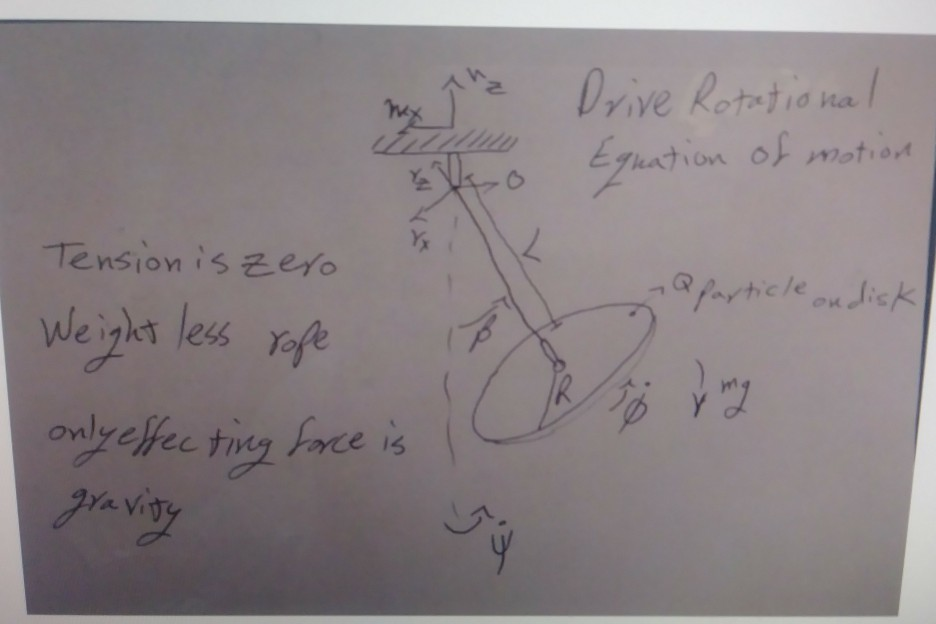 n_z
n_x
Drive Rotational
Equation of motion
r_z
O
r_x
L
Tension is zero
Q particle on disk
Weight less rope
β
R
φ̇
mg
only effecting force is
gravity
ψ̇